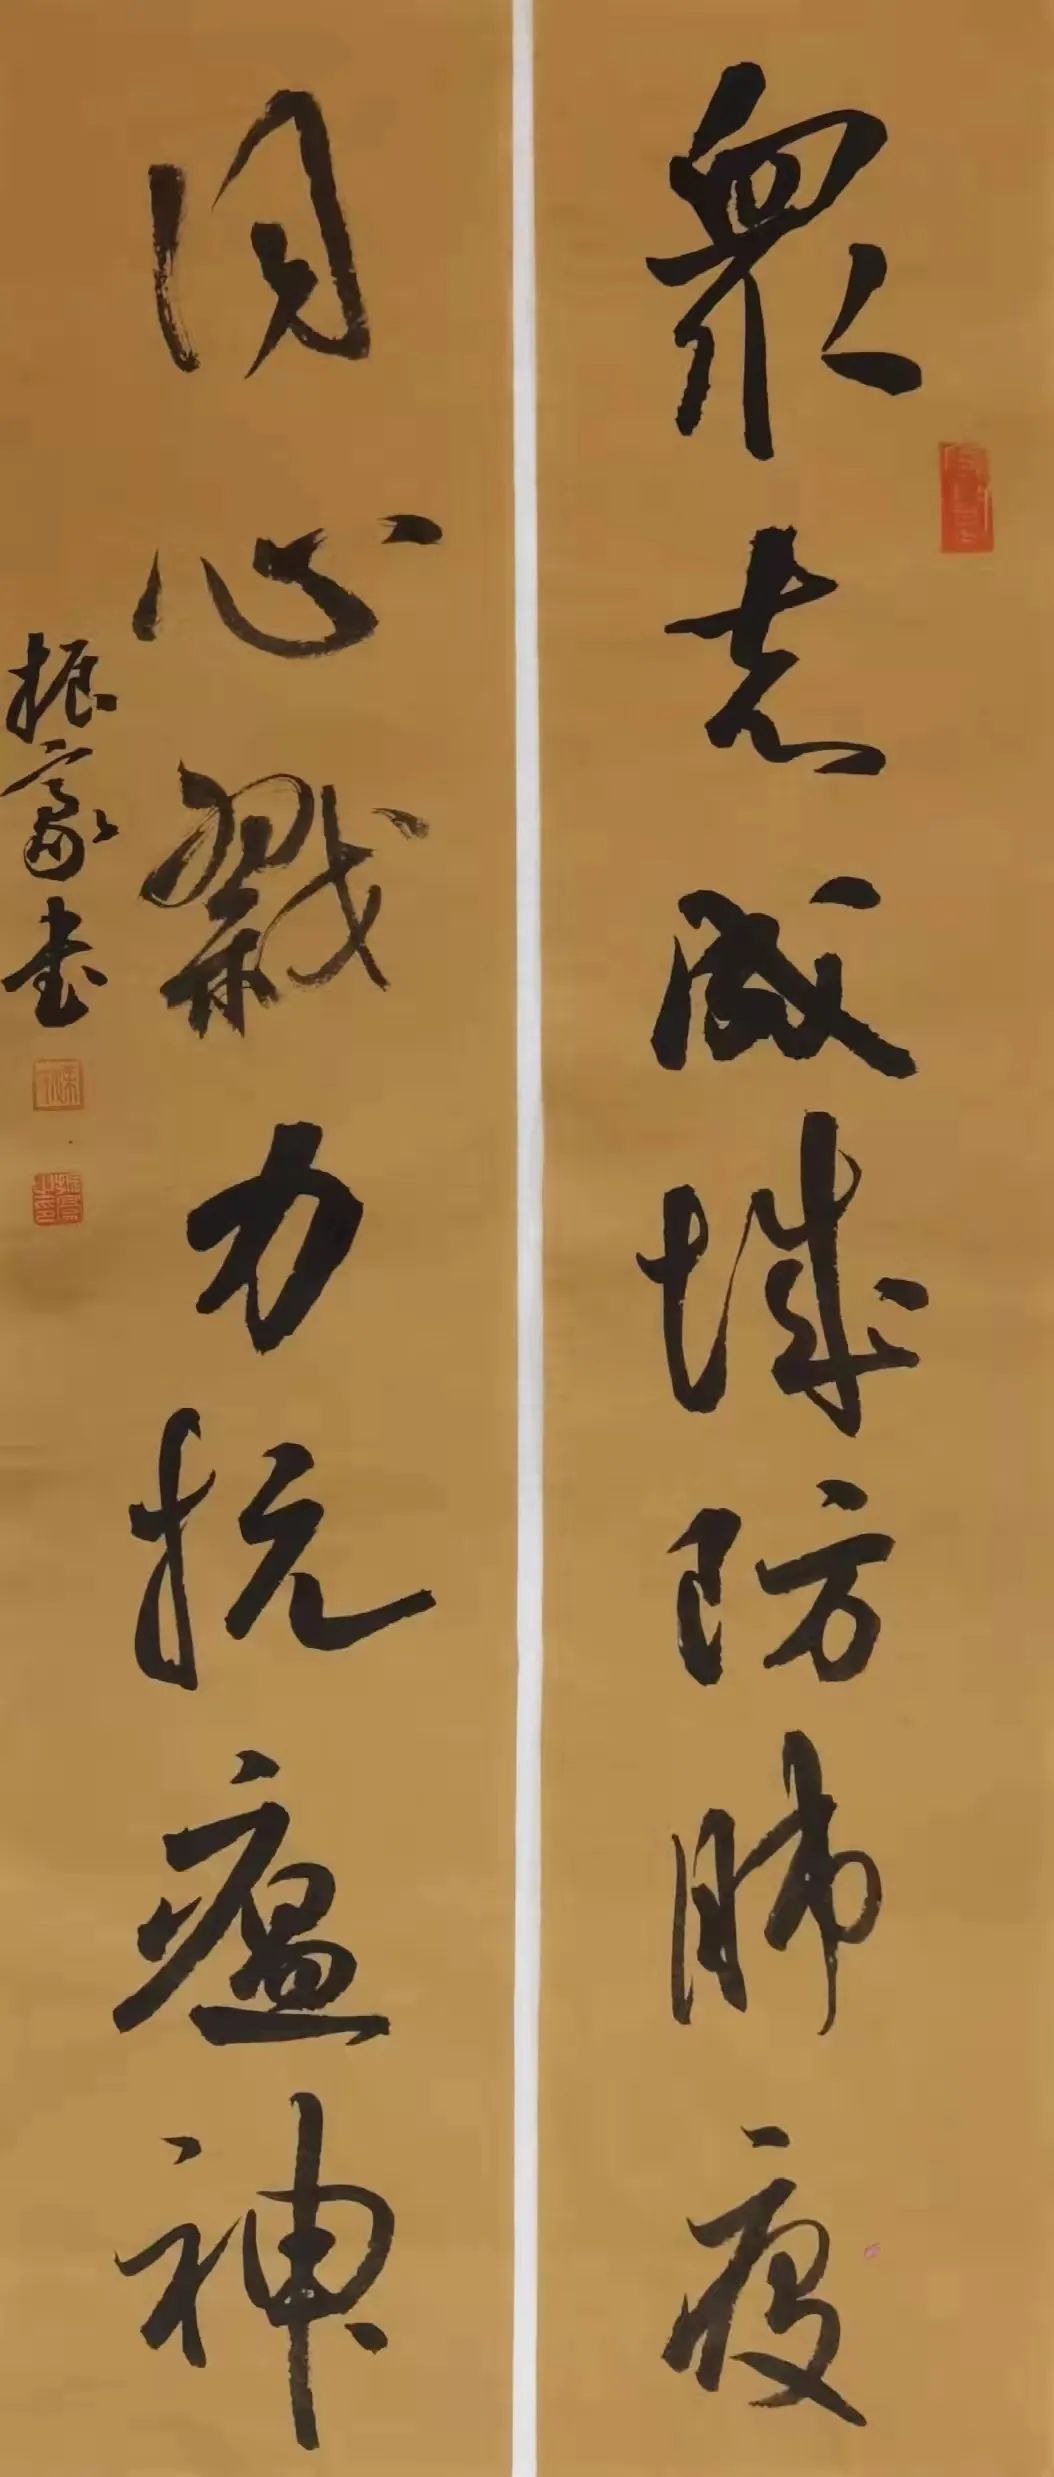 眾志成城防肺疫
同心戮力抗瘟神
振豪书